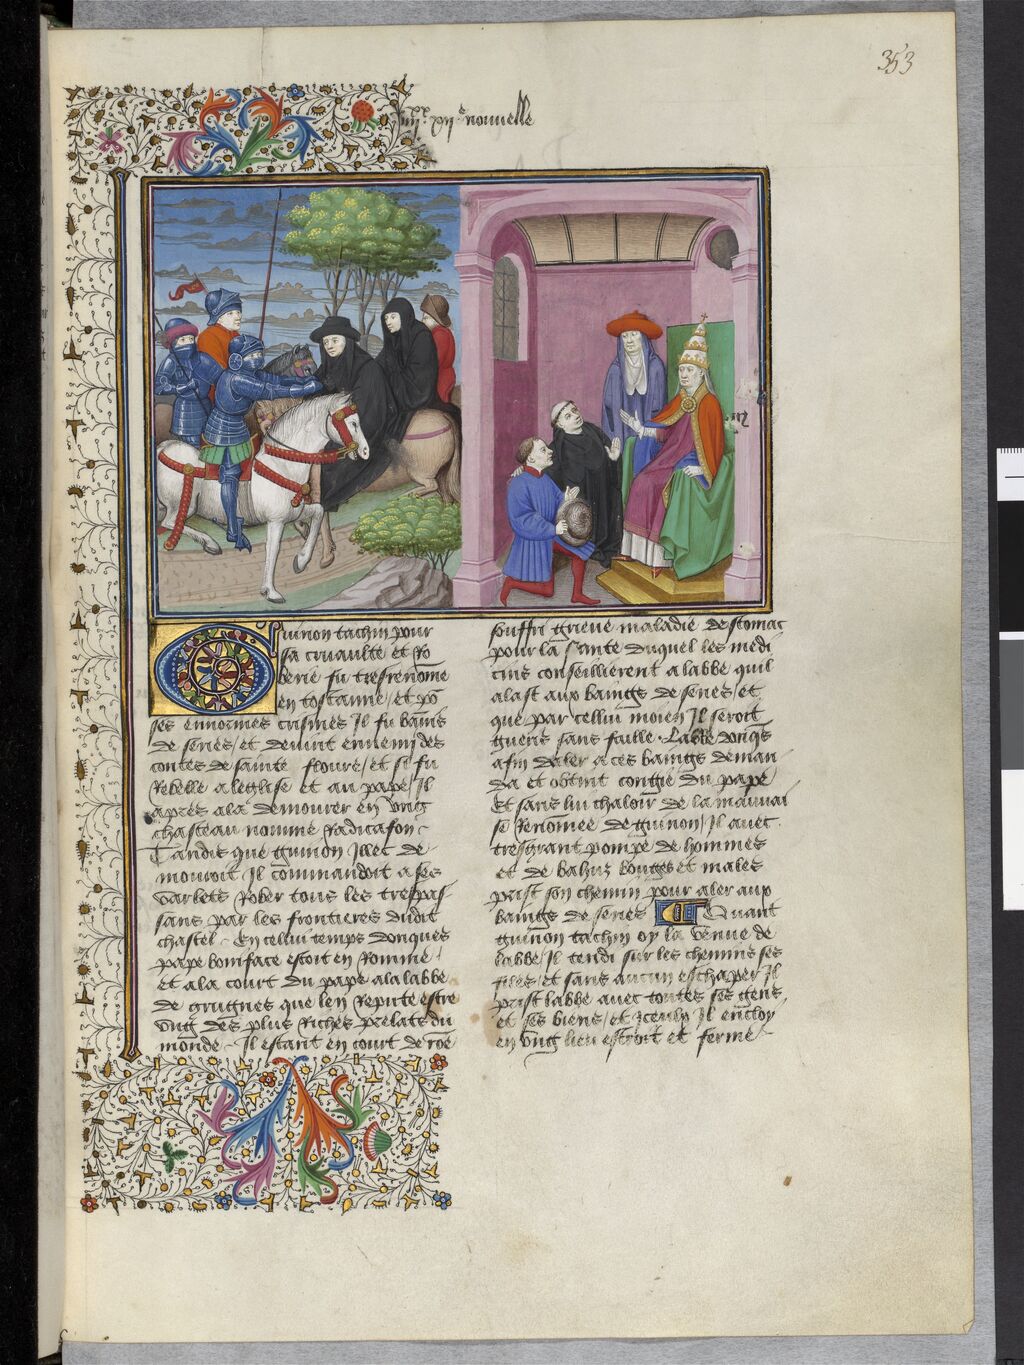 353
iiii.xx xij.e nouuelle
Guinon tachin pour
sa cruaulte et ro
berie fu tresrenome
en toscanne / et po
ses ennormes crismes Il fu banis
de senes / et deuint ennemi des
contes de sainte floure / et si fu
Rebelle a leglise et au pape / Il
apres ala demourer en vng
chasteau nomme Radicafon
Tandis que guinon Illec de
mouroit Il commandoit a ses
varlets Rober tous les trespas
sans par les frontieres dudit
chastel En cellui temps donques
pape boniface estoit en Romme
et a la court du pape ala labbe
de grugnes que len Repute estre
vng des plus Riches prelats du
monde Il estant en court de rome
souffri grieue maladie destomac
pour la sante duquel les medi
cins conseillierent a labbe quil
alast aux baings de senes / et
que par cellui moien Il seroit
gueris sans faille Labbe donqs
afin daler a ces baings deman
da et obtint congie du pape
Et sans lui chaloir de la mauuai
se Renomee de guinon / Il auec
tresgrant pompe de hommes
et de bahuz bouges et males
prist son chemin pour aler aux
baings de senes Quant
guinon tachin oy la venue de
labbe / Il tendi sur les chemins ses
files / et sans aucun eschaper Il
prist labbe auec toutes ses gens
et ses biens / et Iceulx Il encloy
en vng lieu estroit et ferme